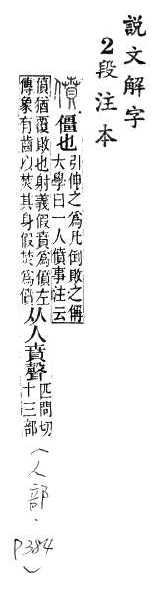 說文解字
2段注本
僨 僵也
引伸之爲凡倒敗之偁
大學曰一人僨事注云
僨猶覆敗也射義假賁爲僨左
傳象有齒以焚其身假焚爲僨
从人賁聲
匹問切
十三部
(人部.P384)